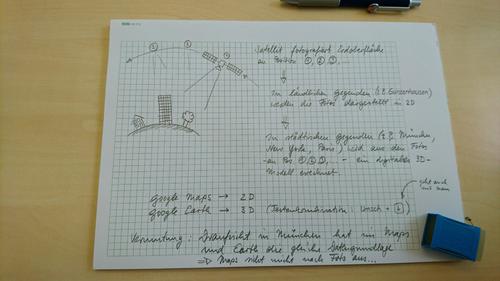 ③ ② ①
Satellit fotografiert Erdoberfläche
an Position ①, ②, ③,
In ländlichen Gegenden (z.B. Gunzenhausen)
werden die Fotos dargestellt in 2D
In städtischen Gegenden (z.B. München,
New York, Paris) wird aus den Fotos
an Pos. ① ② ③ - ein digitales 3D-
Modell errechnet.
geht auch
mit
Google Maps → 2D
Google Earth → 3D (Tastenkombination: Umsch + ↓)
Vermutung: Draufsicht in München hat in Maps
und Earth die gleiche Datengrundlage
⇒ Maps sieht nicht nach Foto aus...